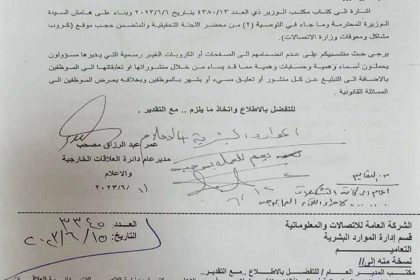 اشارة الى كتاب مكتب الوزير ذي العدد ٤٣٨٠/١٣ بتاريخ ٢٠٢٣/٦/٦ وبناء على هامش السيدة
الوزيرة المحترمة وما جاء في التوصية (٢) من محضر اللجنة التحقيقية والمتضمن حجب موقع (كروب
مشاكل ومعوقات وزارة الاتصالات).
يرجى حث منتسبيكم على عدم انضمامهم الى الصفحات او الكروبات الغير رسمية التي يديرها مسؤولون
يحملون أسماء وهمية وحسابات وهمية مما قد يساء من خلال منشوراته او تعليقاتها الى الموظفين
بالاضافة الى التبليغ عن كل منشور أو تعليق مسيء او يشهر بالموظفين وبخلافه يعرض الموظفين الى
المسائلة القانونية .
للتفضل بالاطلاع واتخاذ ما يلزم .. مع التقدير.
الموارد البشرية
عمر عبد الرزاق مصحب
مدير عام دائرة العلاقات الخارجية
والاعلام
٢٠٢٣/٦/
الشركة العامة للاتصالات والمعلوماتية
قسم إدارة الموارد البشرية
التعاميم
نسخة منه إلى//
العدد ٣٣٤٥
التاريخ: ٢٠٢٣/٦/١٥
مكتب المدير العام / للتفضل بالاطلاع .. مع التقدير